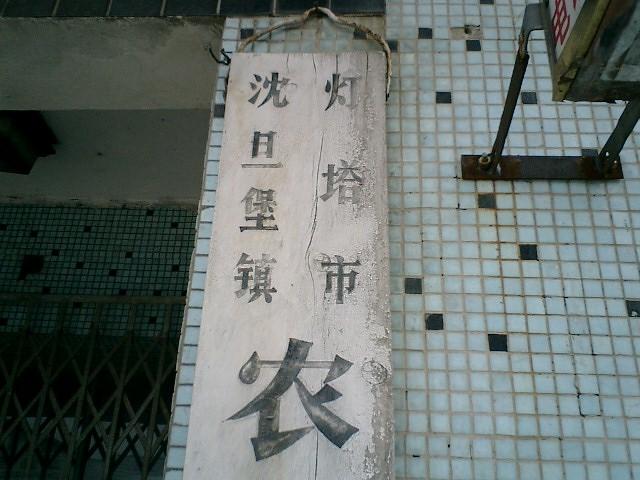 灯塔市
沈旦堡镇
农